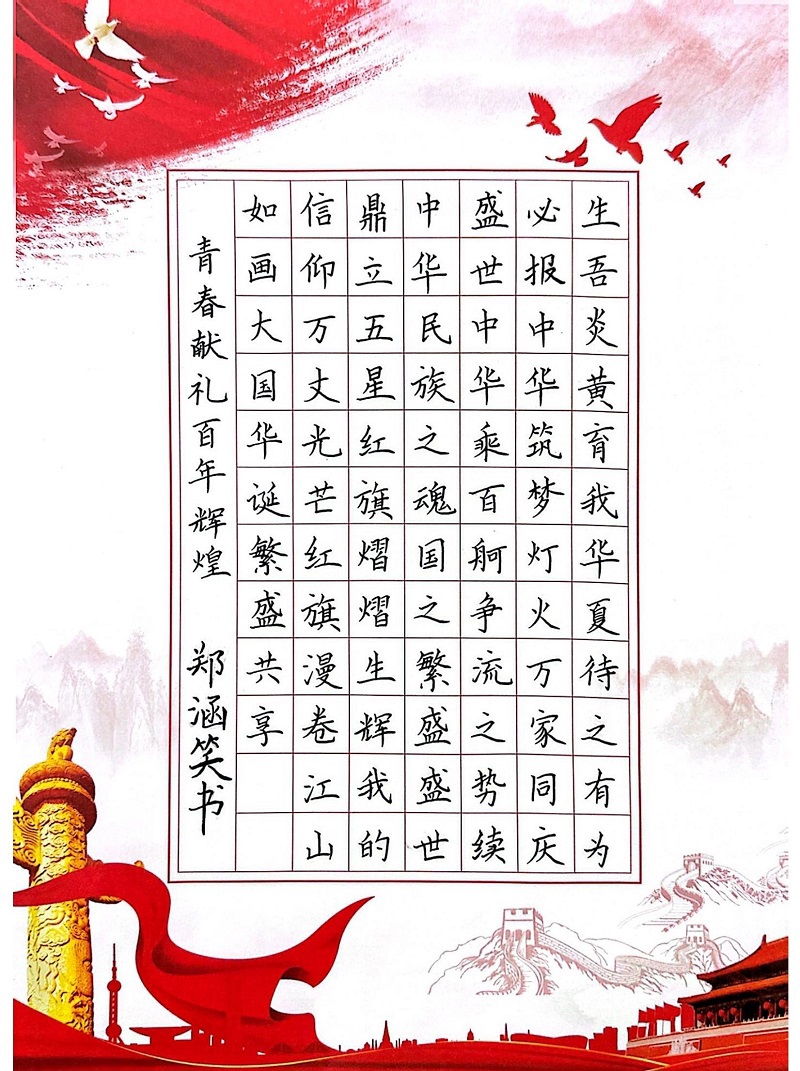 生吾炎黄育我华夏待之有为
必报中华筑梦灯火万家同庆
盛世中华乘百舸争流之势续
中华民族之魂国之繁盛盛世
鼎立五星红旗熠熠生辉我的
信仰万丈光芒红旗漫卷江山
如画大国华诞繁盛共享
青春献礼百年辉煌
郑涵笑书